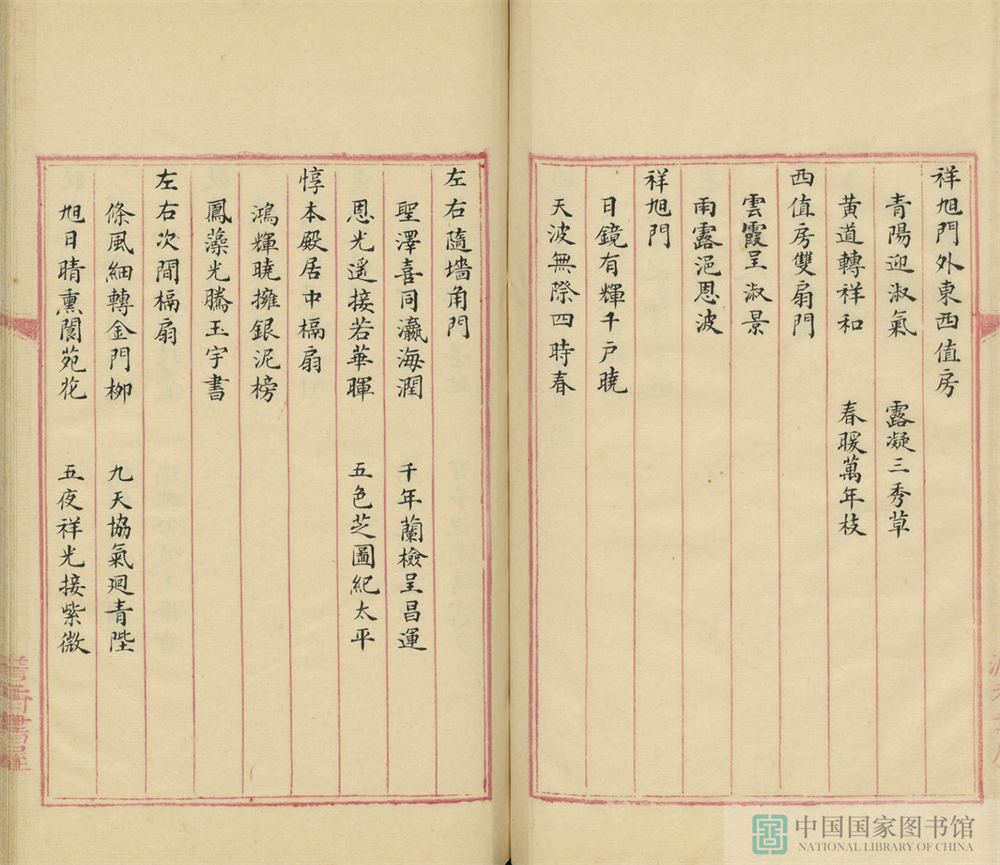 祥旭門外東西值房
青陽迎淑氣　露凝三秀草
黄道轉祥和　春暖萬年枝
西值房雙扇門
雲霞呈淑景
雨露浥恩波
祥旭門
日鏡有輝千戸曉
天波無際四時春
左右隨墻角門
聖澤喜同瀛海潤　千年蘭檢呈昌運
恩光遥接若華暉　五色芝圖紀太平
惇本殿居中槅扇
鴻輝曉擁銀泥榜
鳳藻光騰玉宇書
左右次間槅扇
條風細轉金門栁　九天協氣廻青陛
旭日晴熏閬苑花　五夜祥光接紫微
中国国家图书馆
NATIONAL LIBRARY OF CHINA